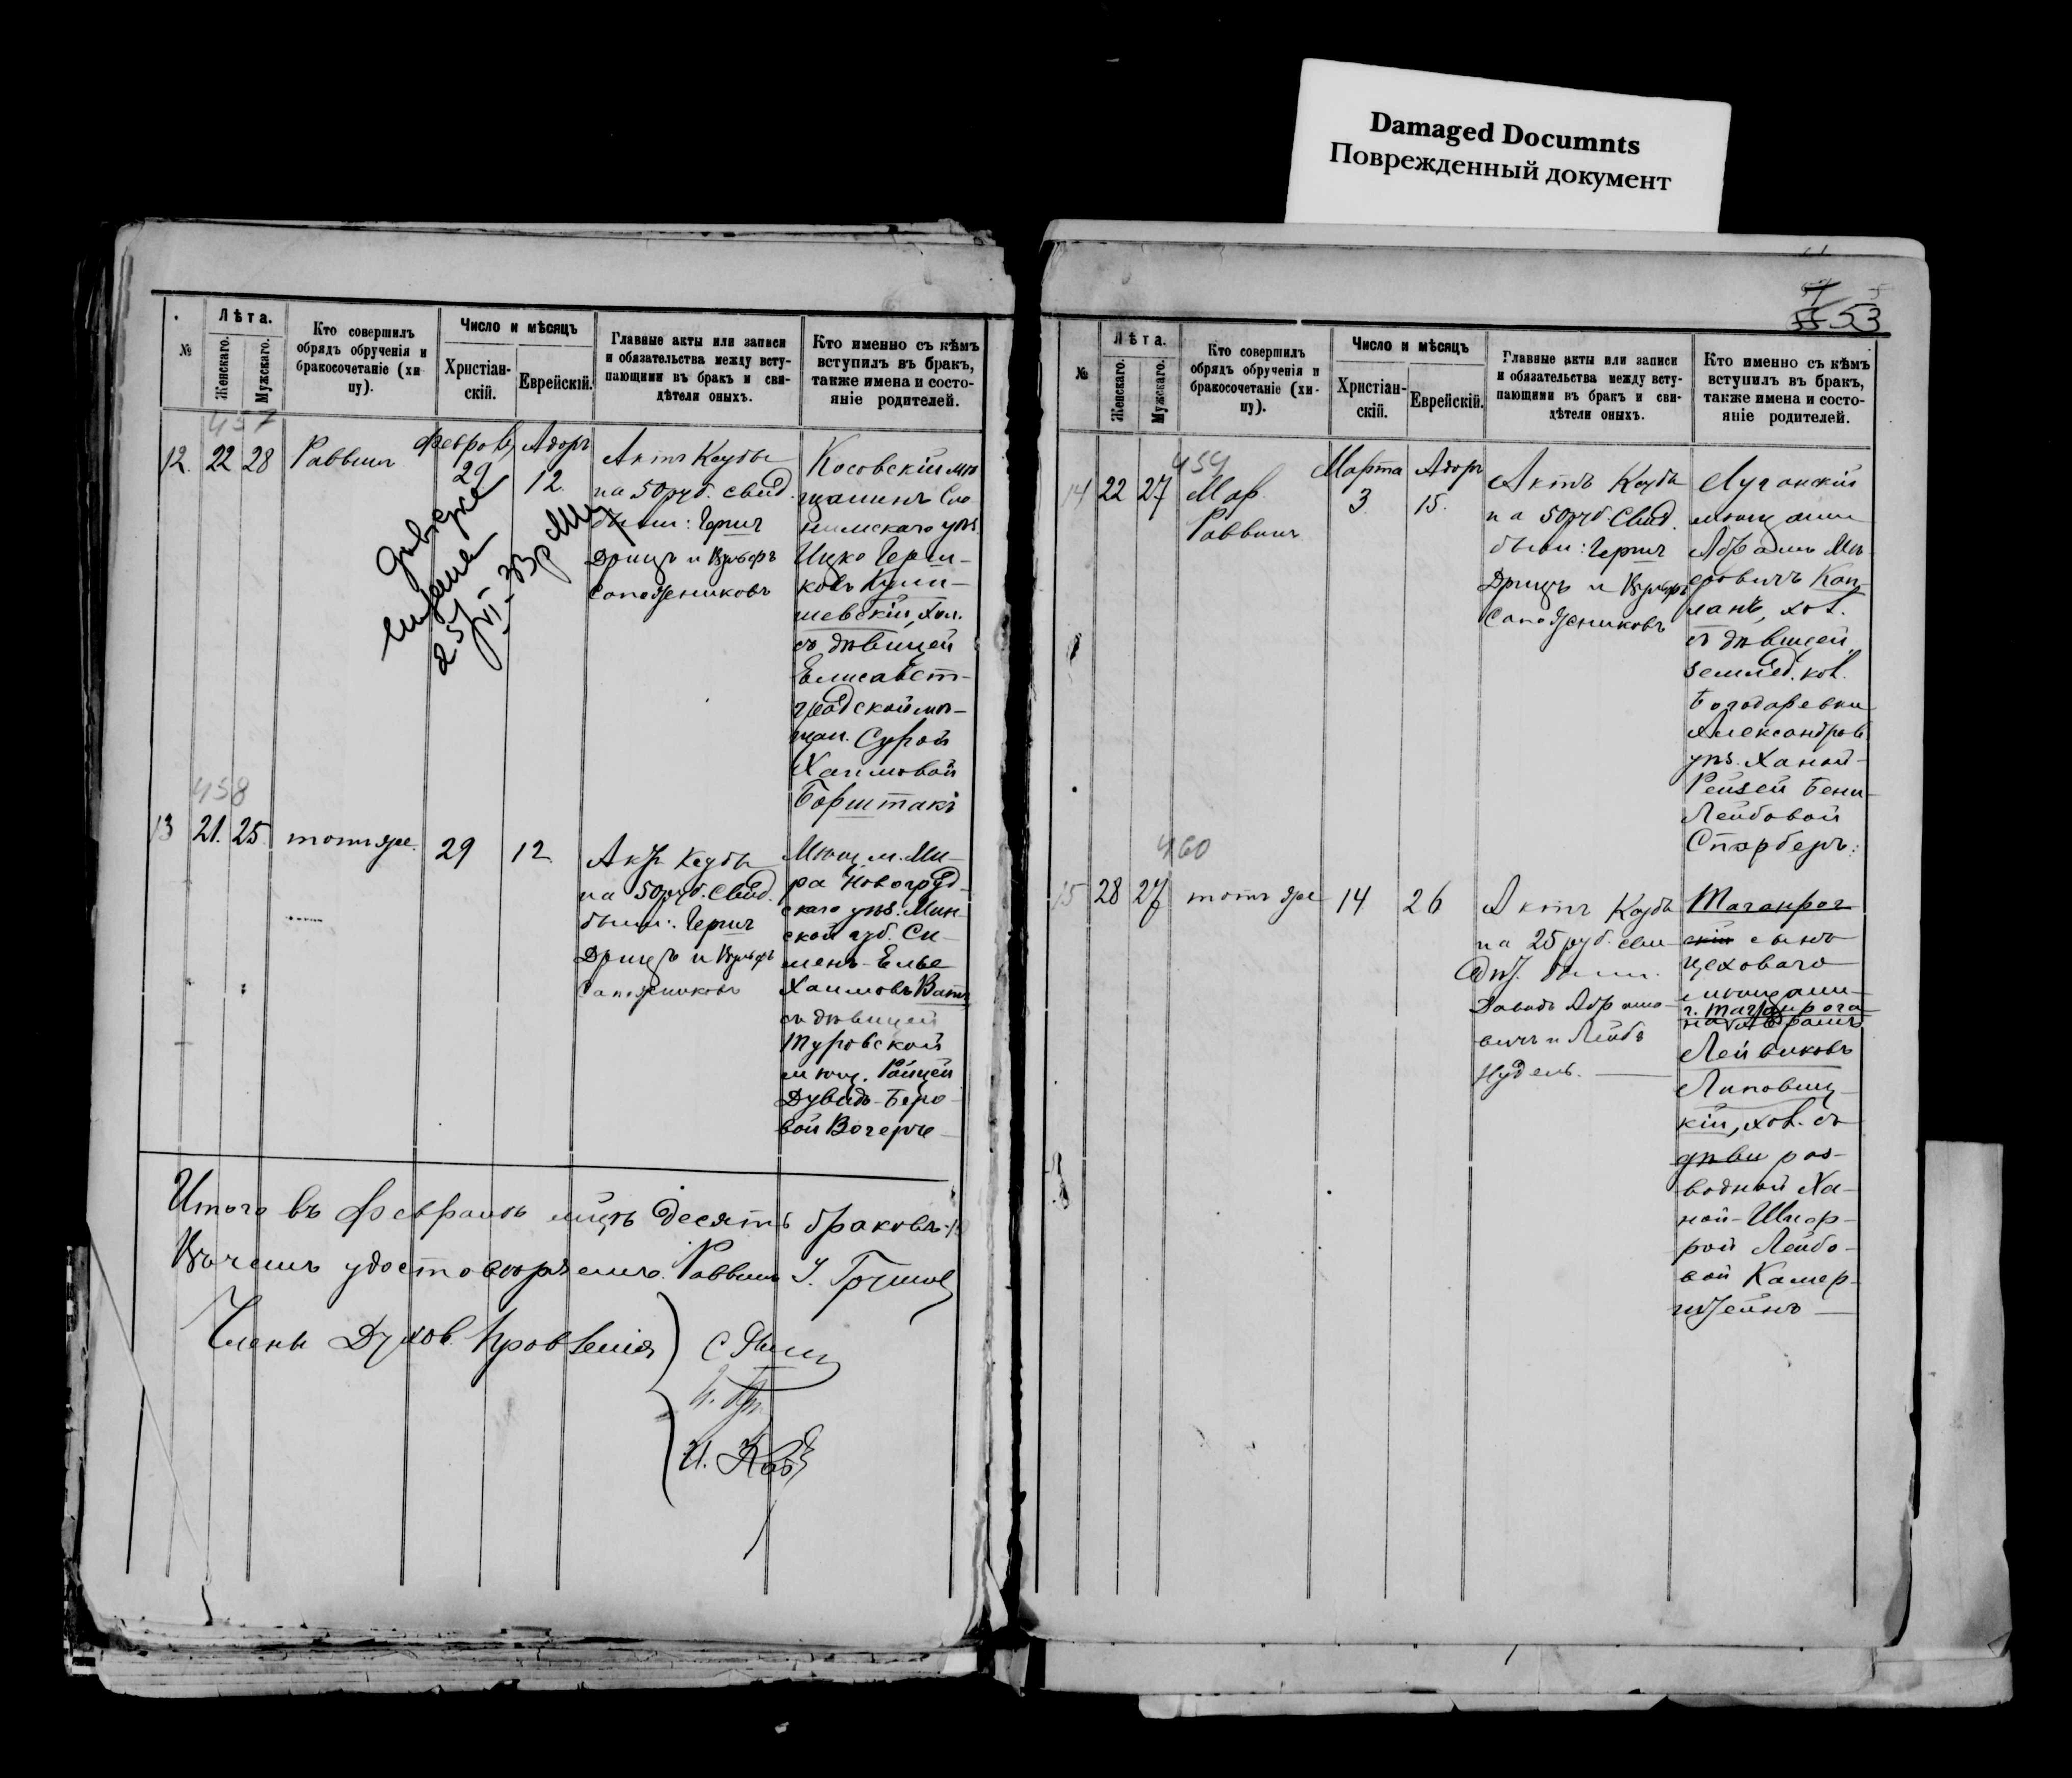 Damaged Documnts
Поврежденный документ
№
Лѣта.
Женскаго.
Мужскаго.
Кто совершилъ
обрядъ обрученія и
бракосочетаніе (хи
пу).
Число и мѣсяцъ
Христіан-
скій.
Еврейскій.
Главные акты или записи
и обязательства между всту-
пающими въ бракъ и сви-
дѣтели оныхъ.
Кто именно съ кѣмъ
вступилъ въ бракъ,
также имена и состо-
яніе родителей.
457
12. 22 28 Раввинъ
Феврал. 29
Адаръ 12
Актъ Кетубы
на 50 руб. свид.
были: Гершъ
Дрицъ и Вульфъ
Сапожниковъ
Косовскій мѣ
щанинъ Сло
нимскаго уѣз.
Ицко Герш-
ковъ
шевскій, хол.
съ дѣвицей
Елисавет-
градской мѣ-
щан. Сурой
Хаимовой
Борштакъ
458
13 21. 25. тотъ же 29 12
Актъ Кетубы
на 50 руб. свид.
были: Гершъ
Дрицъ и Вульфъ
Сапожниковъ
Мѣщ. м. Ми-
ра Новогруд-
скаго уѣз. Мин-
ской губ. Си-
менъ-Елье
Хаимовъ
съ дѣвицей
Туровской
мѣщ.
Дувидъ-Беро-
вой
Итого въ Февралѣ мцѣ десять браковъ
Въ чемъ удостовѣряемъ. Раввинъ
Члены Духов. Правленія
№
Лѣта.
Женскаго.
Мужскаго.
Кто совершилъ
обрядъ обрученія и
бракосочетаніе (хи-
пу).
Число и мѣсяцъ
Христіан-
скій.
Еврейскій.
Главные акты или записи
и обязательства между всту-
пающими въ бракъ и сви-
дѣтели оныхъ.
Кто именно съ кѣмъ
вступилъ въ бракъ,
также имена и состо-
яніе родителей.
53
459
14 22 27
Раввинъ
Марта 3.
Адаръ 15.
Актъ Кетубы
на 50 руб. свид.
были: Гершъ
Дрицъ и Вульфъ
Сапожниковъ
Луганскій
мѣщанин
Абрамъ Мѣ-
еровичъ Кап-
ланъ, хол.
съ дѣвицей
землед. кол.
Богодаревки
Александров.
уѣз. Ханой-
Рейзей Бени-
Лейбовой
Спарберъ.
460
15 28 27 тотъ же 14 26
Актъ Кетубы
на 25 руб. сви-
дѣт. были
Давидъ Абрамо-
вичъ и Лейбъ
Нудель.
Таганрог-
скій сынъ
цеховаго
г. Таганрога
Абрамъ
Лейвиковъ
Липовец-
кій, хол. съ
дѣви раз-
водной Ха-
ной-Шпар-
рой Лейбо-
вой Камер-
штейнъ